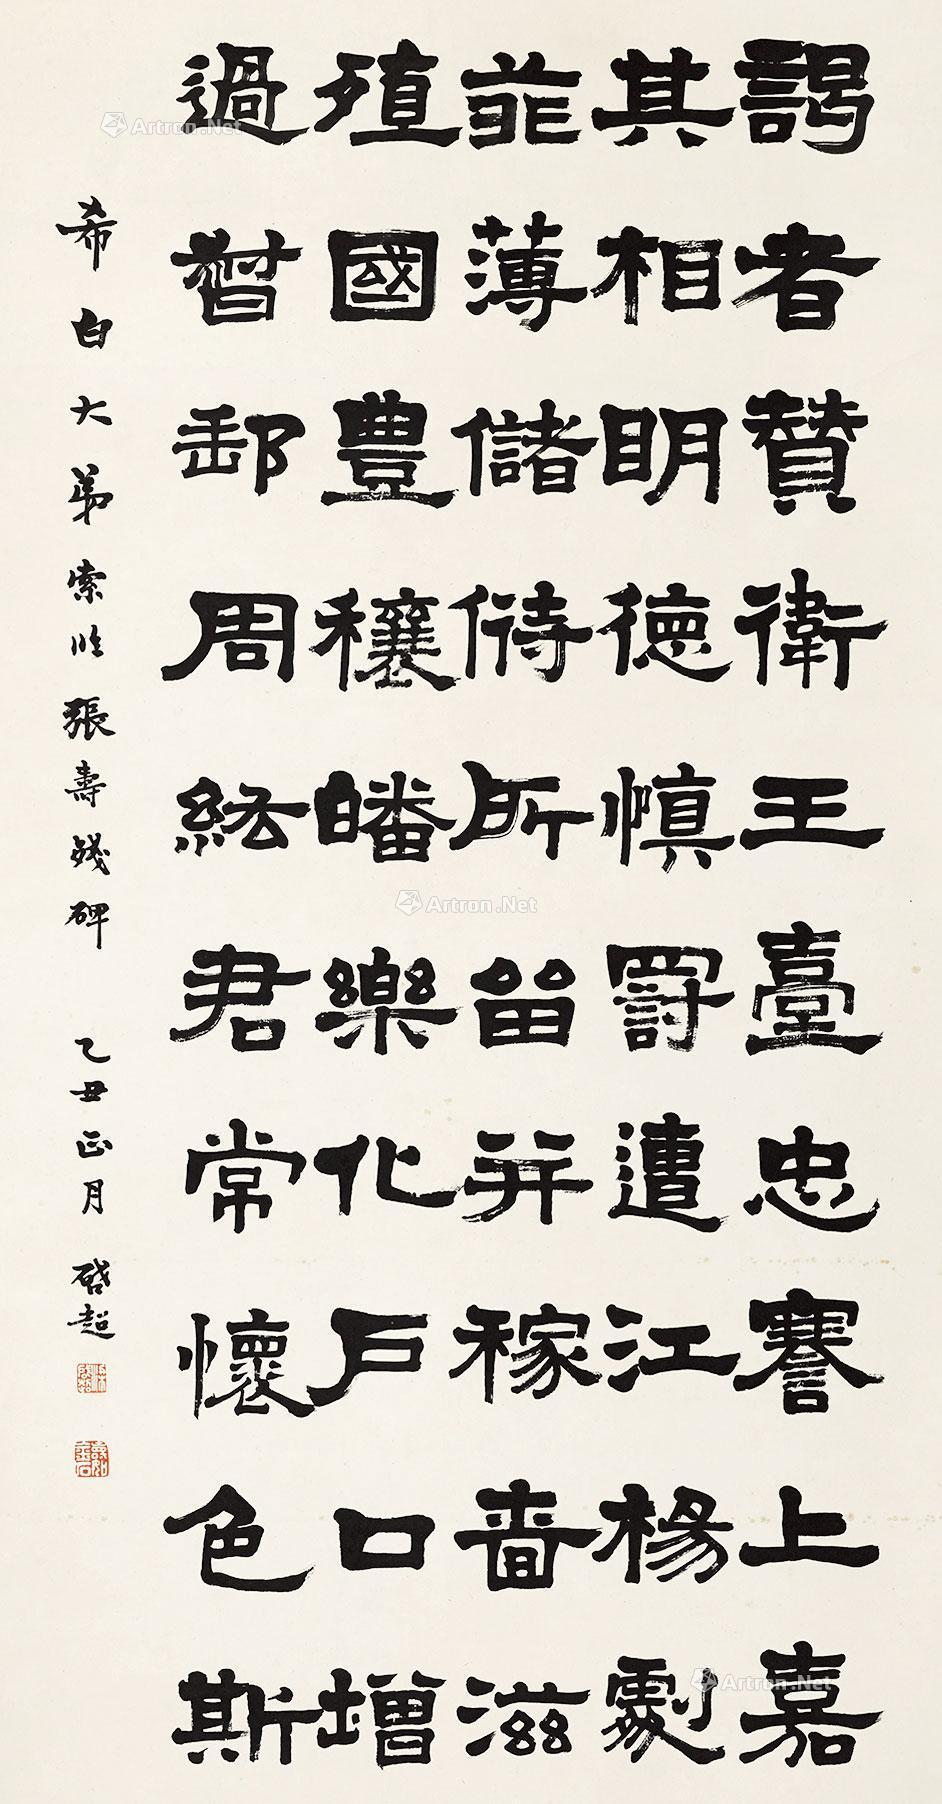 謁者贊衛王臺忠謇上嘉
其相明德慎罰遭江楊劇
菲薄儲偫所留并稼嗇滋
殖國豊穰皤樂化戶口增
過督郵周紘君常懷色斯
希白大弟索臨張壽殘碑 乙丑正月 啟超
Artron.Net
Artron.Net
Artron.Net